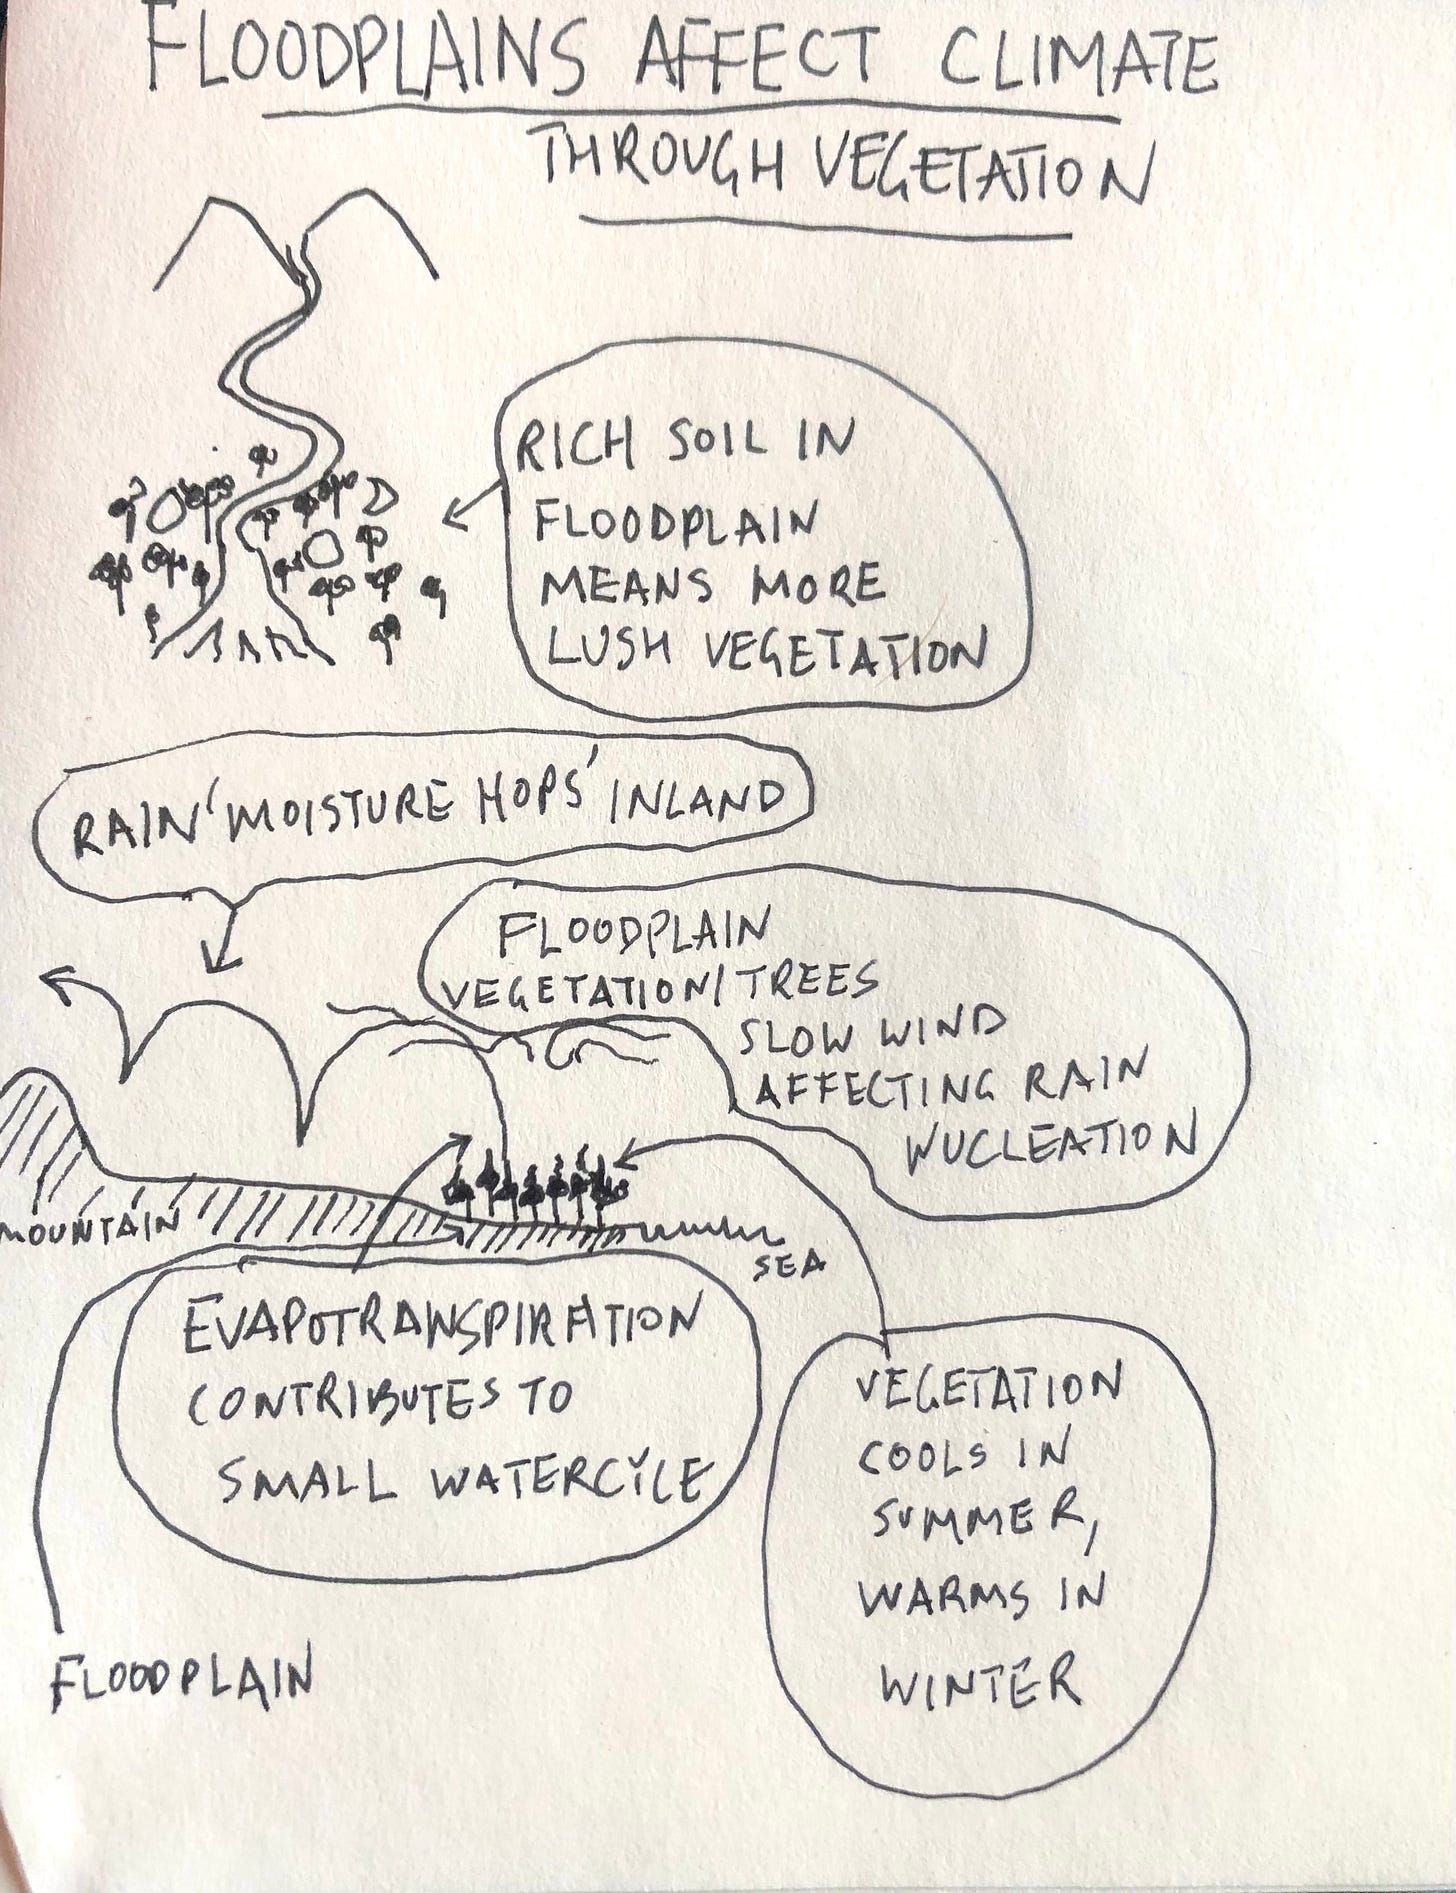 FLOODPLAINS AFFECT CLIMATE
THROUGH VEGETATION
RICH SOIL IN
FLOODPLAIN
MEANS MORE
LUSH VEGETATION
RAIN 'MOISTURE HOPS' INLAND
FLOODPLAIN
VEGETATION/TREES
SLOW WIND
AFFECTING RAIN
NUCLEATION
MOUNTAIN
SEA
EVAPOTRANSPIRATION
CONTRIBUTES TO
SMALL WATERCYCLE
VEGETATION
COOLS IN
SUMMER,
WARMS IN
WINTER
FLOODPLAIN